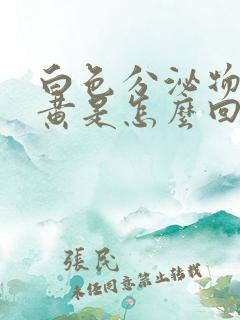 白色分泌物
黄是怎麼回
張民
未经同意禁止转载